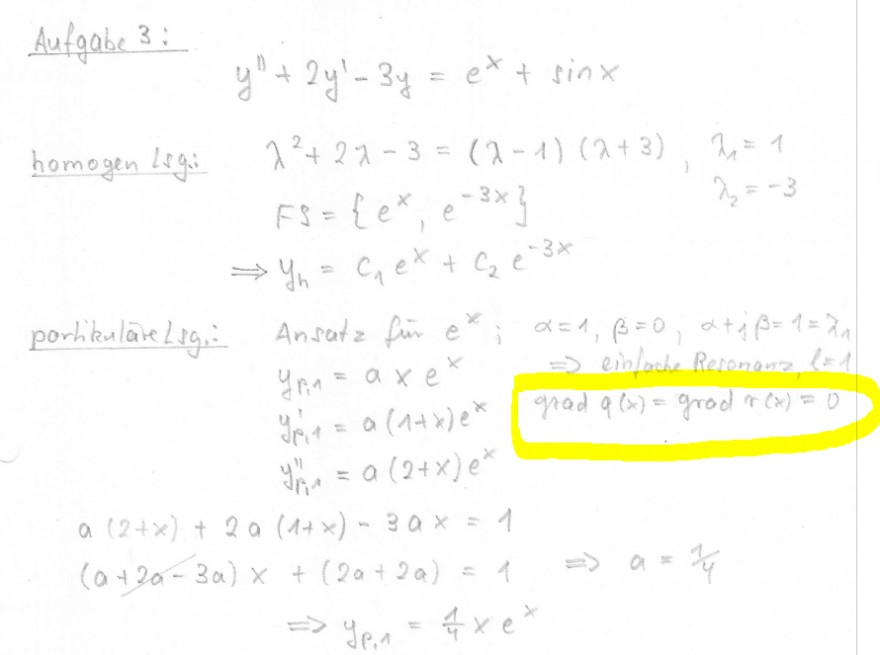 Aufgabe 3:
y'' + 2y' - 3y = e^x + sin x
homogen Lsg.: λ² + 2λ - 3 = (λ - 1) (λ + 3) , λ₁ = 1
λ₂ = -3
FS = { e^x , e^{-3x} }
⇒ y_h = C₁ e^x + C₂ e^{-3x}
partikuläre Lsg.: Ansatz für e^x ; α = 1, β = 0 ; α + jβ = 1 = λ₁
⇒ einfache Resonanz, l = 1
y_{p,1} = a x e^x
grad q(x) = grad r(x) = 0
y'_{p,1} = a (1+x) e^x
y''_{p,1} = a (2+x) e^x
a (2+x) + 2a (1+x) - 3 a x = 1
(a + 2a - 3a) x + (2a + 2a) = 1 ⇒ a = 1/4
⇒ y_{p,1} = 1/4 x e^x